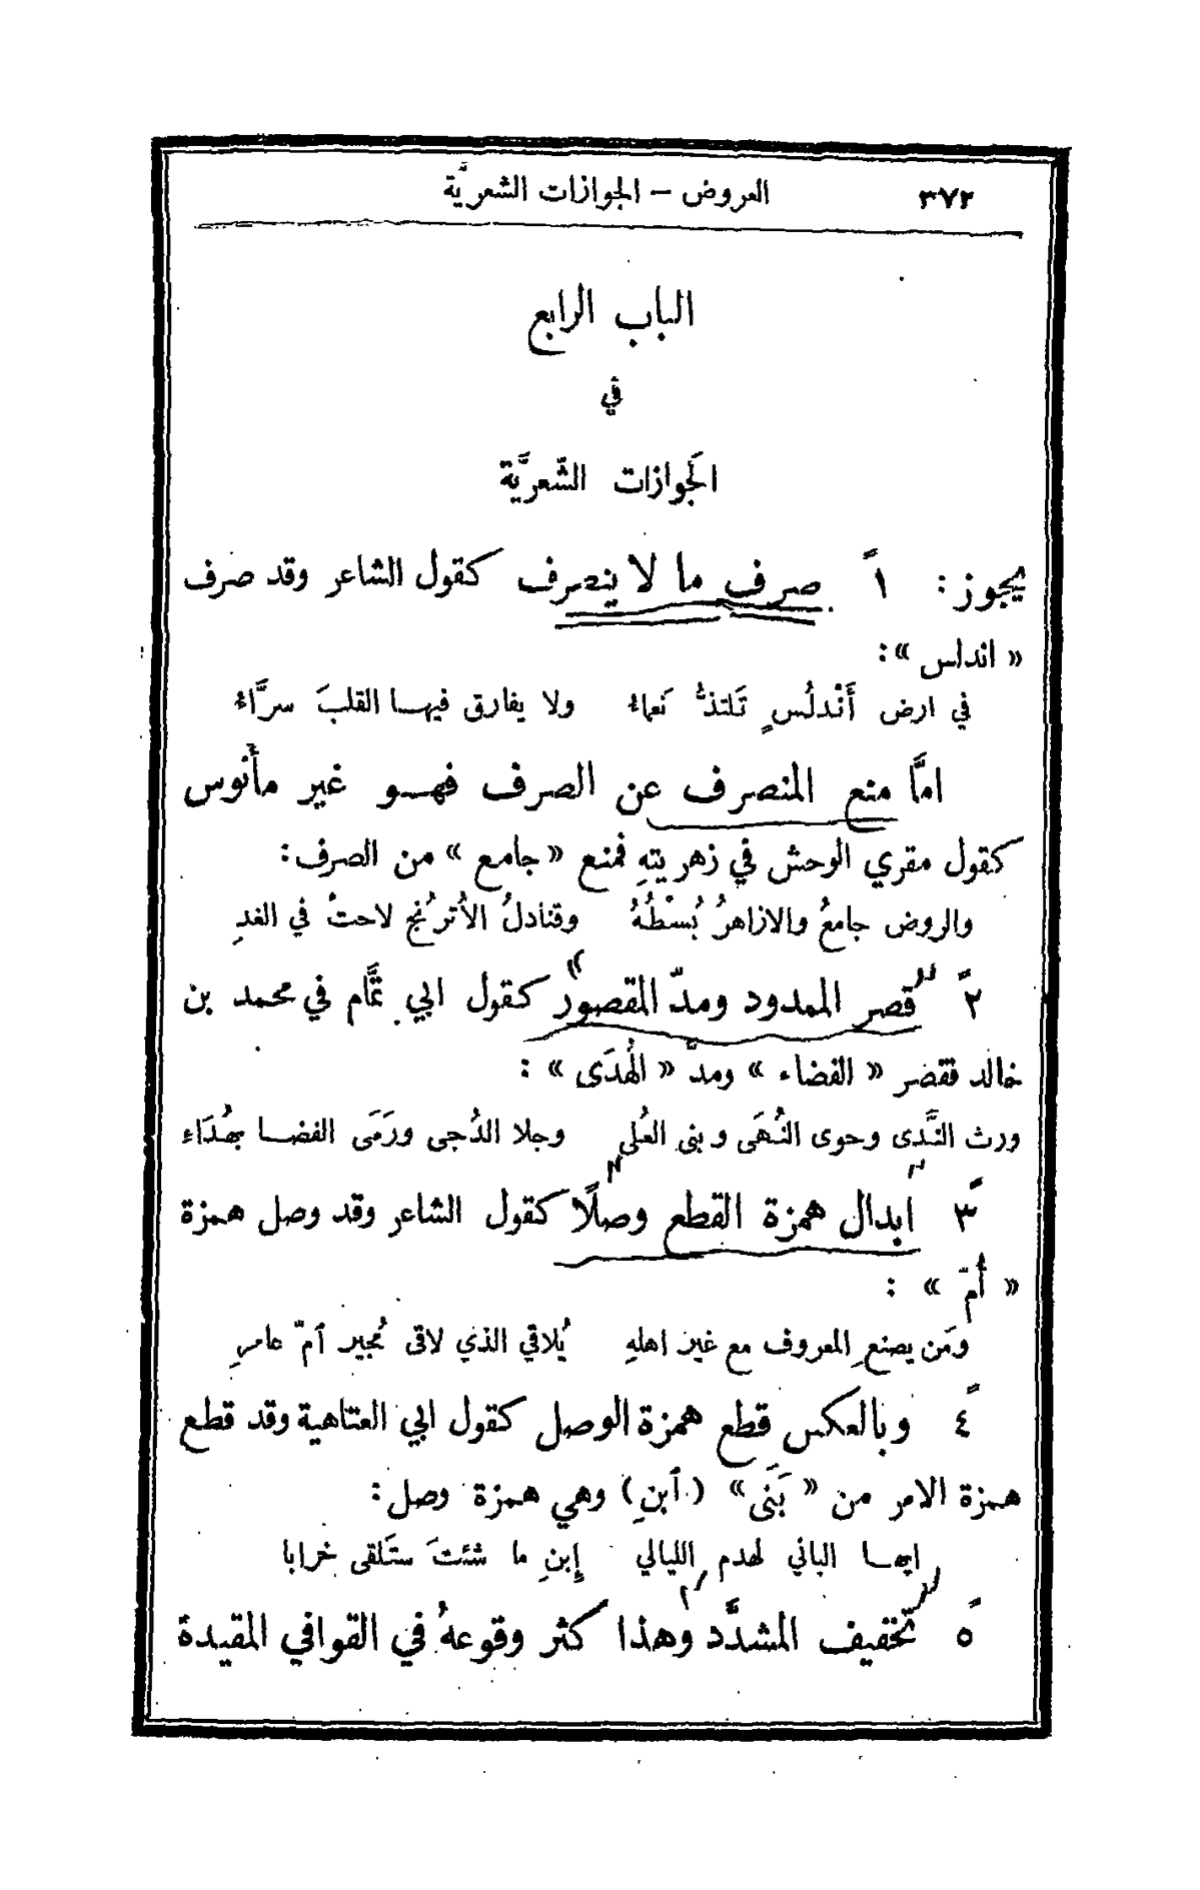 ٣٧٢ العروض – الجوازات الشعريَّة
الباب الرابع
في
الجَوازات الشّعريَّة
يجوز: ١ً صرف ما لا ينصرف كقول الشاعر وقد صرف
« اندلس »:
في ارض أَنْدلُسٍ تَلتذُّ نَعماءُ ولا يفارق فيهـا القلبَ سرَّاءُ
امَّا منع المنصرف عن الصرف فهـو غير مأنوس
كقول مقري الوحش في زهريتهِ فمنع « جامع » من الصرف:
والروض جامعُ والازاهرُ بُسْطُهُ وقنادلُ الأُترُنج لاحتْ في الغدِ
٢ً قصر الممدود ومدّ المقصور كقول ابي تمَّام في محمد بن
خالد فقصر « الفضاء » ومدَّ « الهُدَى » :
ورث النَّدى وحوى النُهَى وبنى العُلى وجلا الدُجى ورَمَى الفضـا بهُدَاءِ
٣ً ابدال همزة القطع وصلًا كقول الشاعر وقد وصل همزة
« أُمّ » :
ومَن يصنعِ المعروف مع غيرِ اهلهِ يُلاقي الذي لاقى مُجير ٱمّ عامرِ
٤ً وبالعكس قطع همزة الوصل كقول ابي العتاهية وقد قطع
همزة الامر من « بَنَى » ( ٱبنِ ) وهي همزة وصل:
ايهـا الباني لهدم الليالي إِبنِ ما شئتَ ستَلقى خرابا
٥ً تخفيف المشدَّد وهذا كثر وقوعهُ في القوافي المقيدة